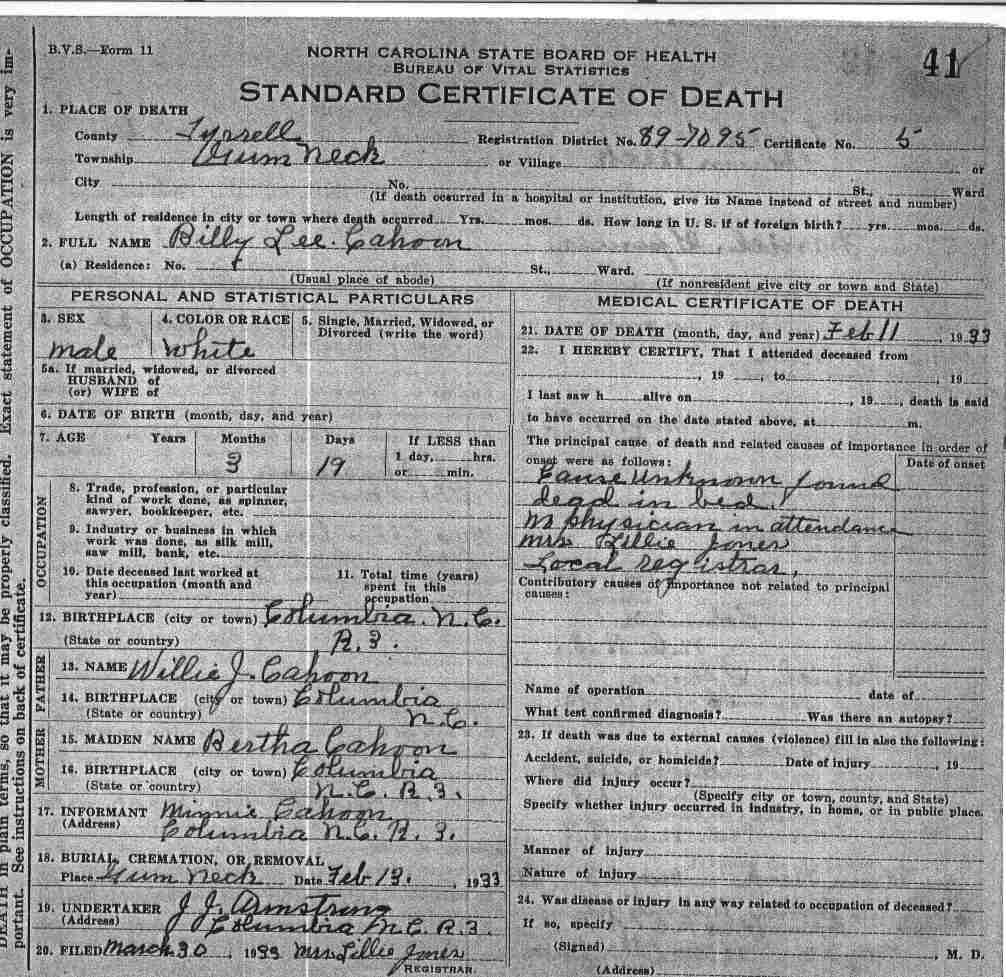 B.V.S.—Form 11
NORTH CAROLINA STATE BOARD OF HEALTH
BUREAU OF VITAL STATISTICS
41
STANDARD CERTIFICATE OF DEATH
1. PLACE OF DEATH
County Tyrrell Registration District No. 89-7095 Certificate No. 5
Township Gum Neck or Village or
City No. St., Ward
(If death occurred in a hospital or institution, give its Name instead of street and number)
Length of residence in city or town where death occurred Yrs. mos. ds. How long in U. S. if of foreign birth? yrs. mos. ds.
2. FULL NAME Billy Lee Cahoon
(a) Residence: No. St., Ward.
(Usual place of abode) (If nonresident give city or town and State)
PERSONAL AND STATISTICAL PARTICULARS
3. SEX 4. COLOR OR RACE 5. Single, Married, Widowed, or
Divorced (write the word)
male White
5a. If married, widowed, or divorced
HUSBAND of
(or) WIFE of
6. DATE OF BIRTH (month, day, and year)
7. AGE Years Months Days If LESS than
1 day, hrs.
3 19 or min.
OCCUPATION
8. Trade, profession, or particular
kind of work done, as spinner,
sawyer, bookkeeper, etc.
9. Industry or business in which
work was done, as silk mill,
saw mill, bank, etc.
10. Date deceased last worked at
this occupation (month and
year)
11. Total time (years)
spent in this
occupation
12. BIRTHPLACE (city or town) Columbia. N.C.
(State or country) R.3.
FATHER
13. NAME Willie J. Cahoon
14. BIRTHPLACE (city or town) Columbia
(State or country) N.C.
MOTHER
15. MAIDEN NAME Bertha Cahoon
16. BIRTHPLACE (city or town) Columbia
(State or country) N.C. R.3.
17. INFORMANT Minnie Cahoon
(Address) Columbia N.C. R.3.
18. BURIAL, CREMATION, OR REMOVAL
Place Gum Neck Date Feb 13. , 1933
19. UNDERTAKER J. J. Armstrong
(Address) Columbia N.C. R.3.
20. FILED March 30 , 1933 Mrs Lillie Jones
REGISTRAR.
MEDICAL CERTIFICATE OF DEATH
21. DATE OF DEATH (month, day, and year) Feb 11 , 1933
22. I HEREBY CERTIFY, That I attended deceased from
, 19 , to , 19
I last saw h alive on , 19 , death is said
to have occurred on the date stated above, at m.
The principal cause of death and related causes of importance in order of
onset were as follows: Date of onset
Cause unknown found
dead in bed.
no physician in attendance
mrs Lillie Jones
Local registrar,
Contributory causes of importance not related to principal
causes:
Name of operation date of
What test confirmed diagnosis? Was there an autopsy?
23. If death was due to external causes (violence) fill in also the following:
Accident, suicide, or homicide? Date of injury , 19
Where did injury occur?
(Specify city or town, county, and State)
Specify whether injury occurred in industry, in home, or in public place.
Manner of injury
Nature of injury
24. Was disease or injury in any way related to occupation of deceased?
If so, specify
(Signed) , M. D.
(Address)
DEATH in plain terms, so that it may be properly classified. Exact statement of OCCUPATION is very im-
portant. See instructions on back of certificate.